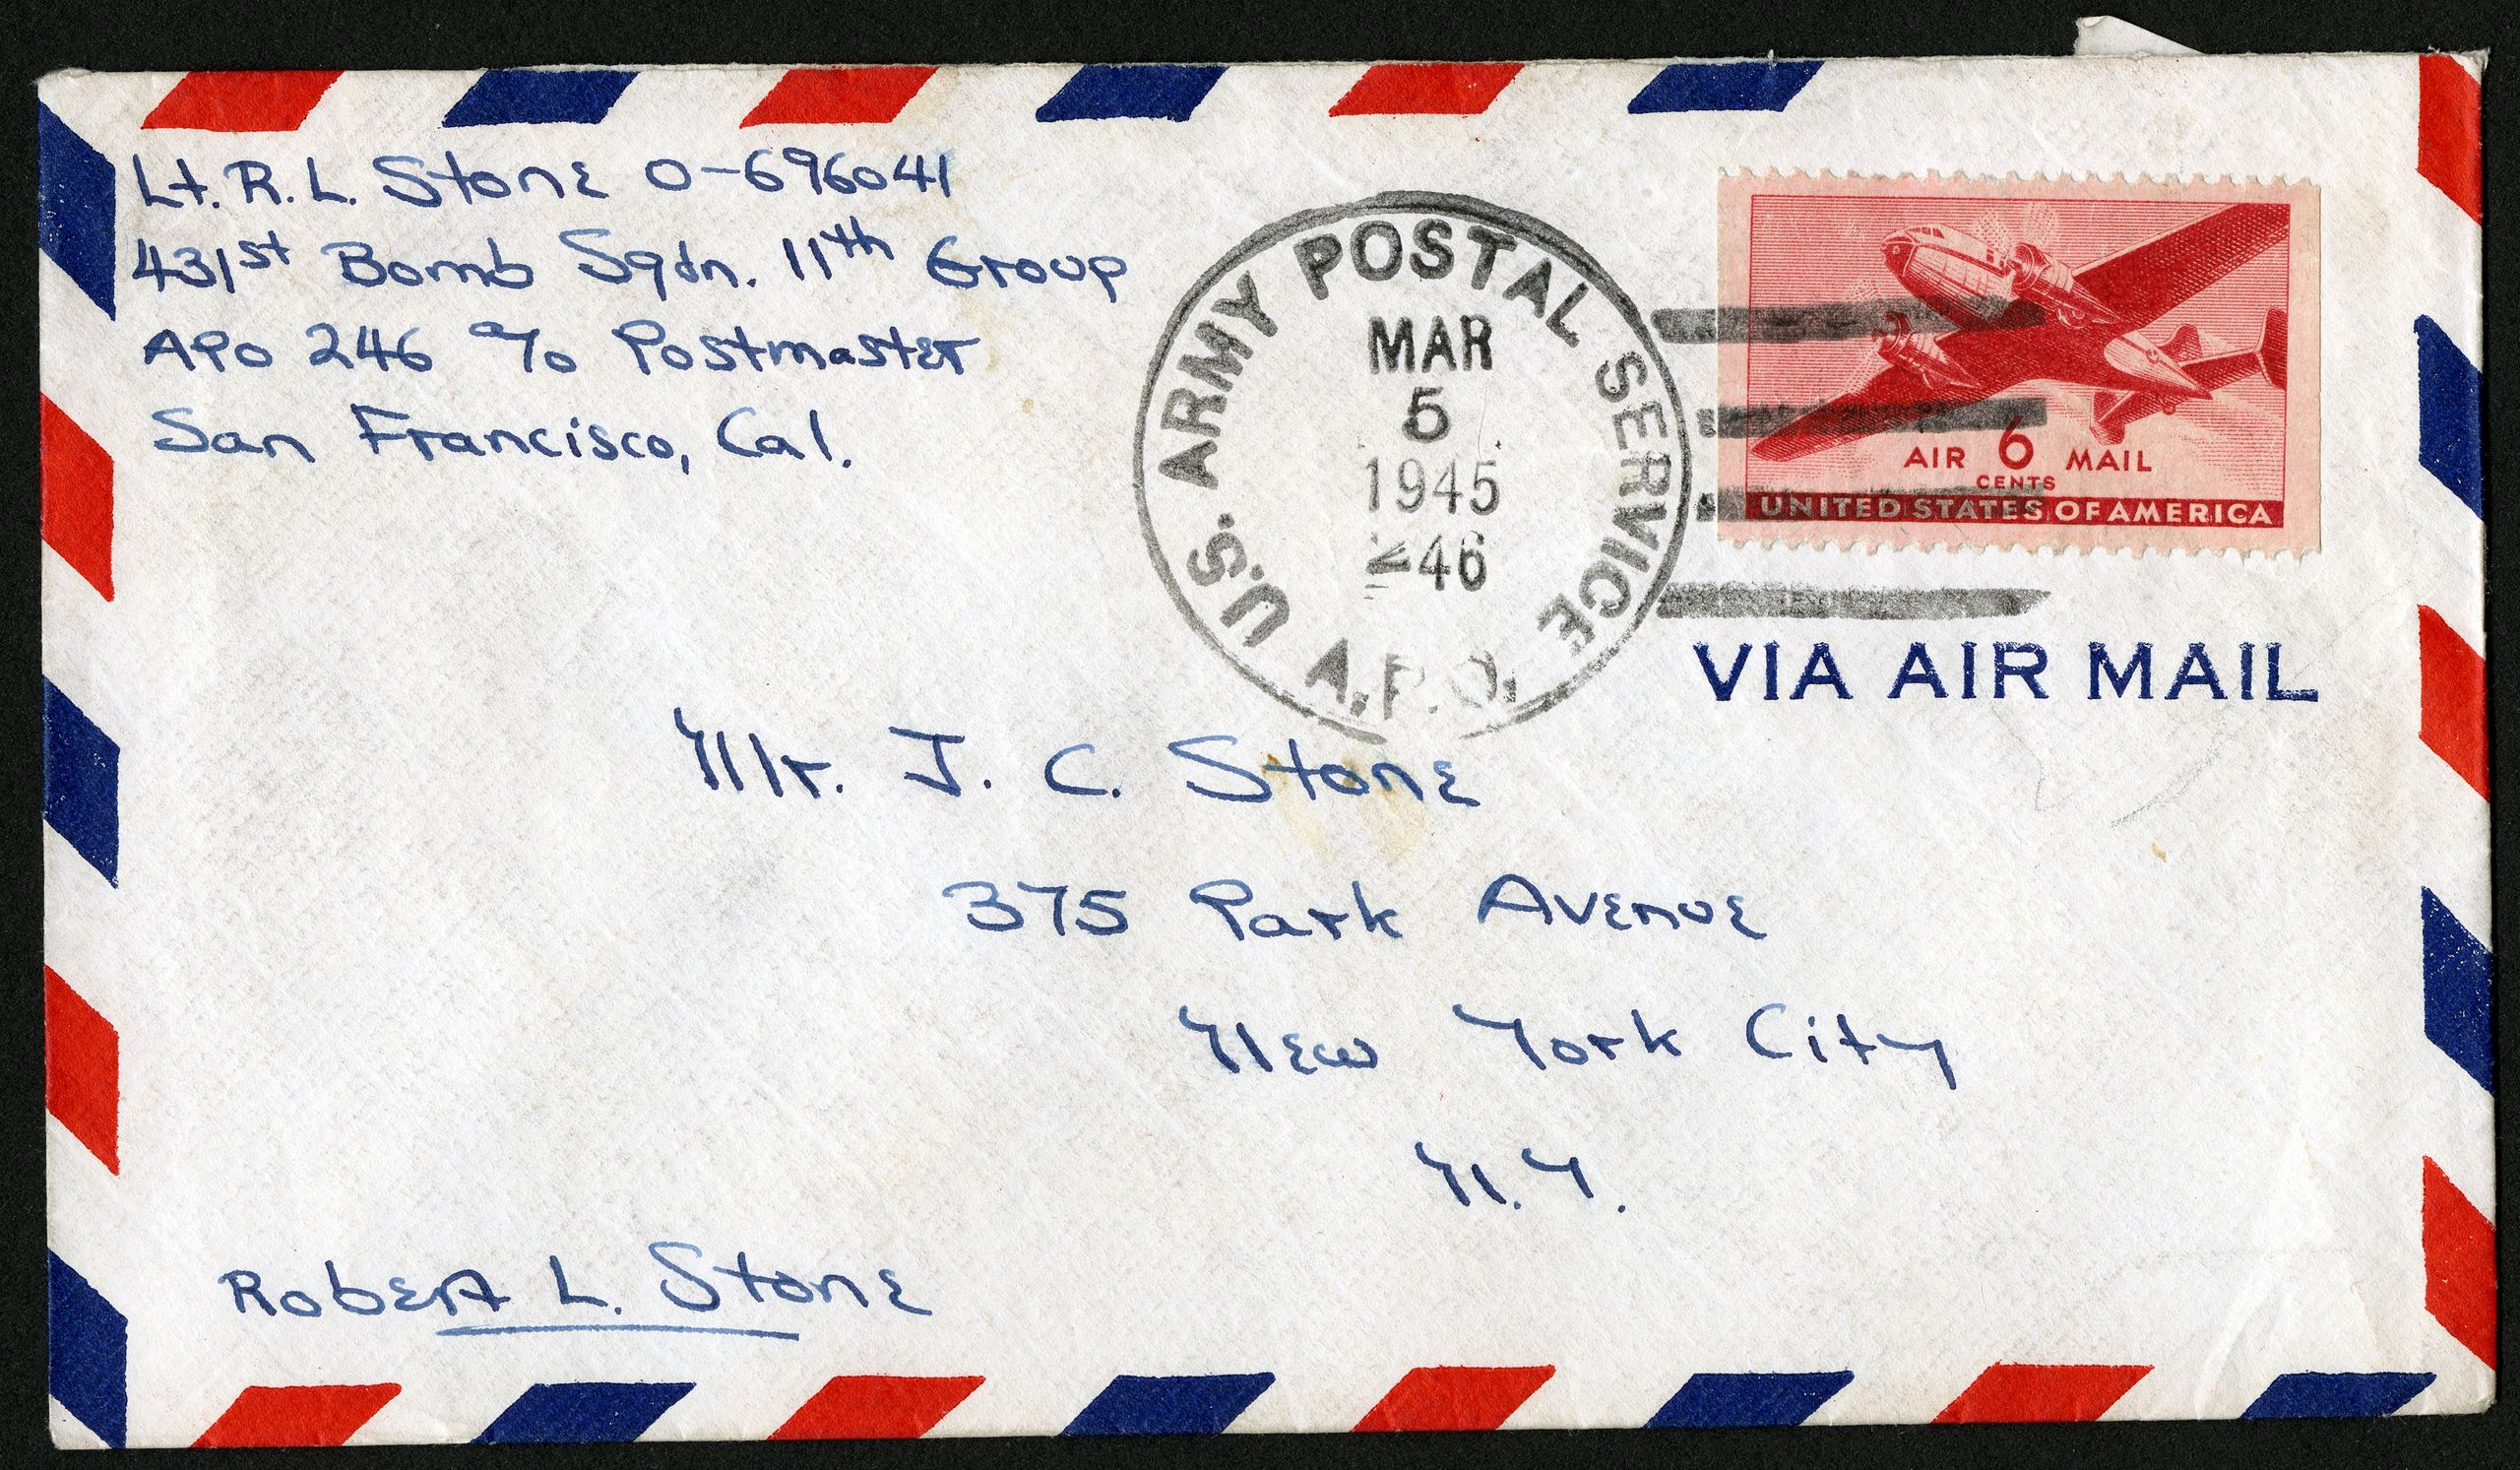 Lt. R. L. Stone O-696041
431st Bomb Sqdn. 11th Group
APO 246 c/o Postmaster
San Francisco, Cal.
U.S. ARMY POSTAL SERVICE
MAR
5
1945
246
A.P.O.
AIR 6 MAIL
CENTS
UNITED STATES OF AMERICA
VIA AIR MAIL
Mr. J. C. Stone
375 Park Avenue
New York City
N.Y.
Robert L. Stone